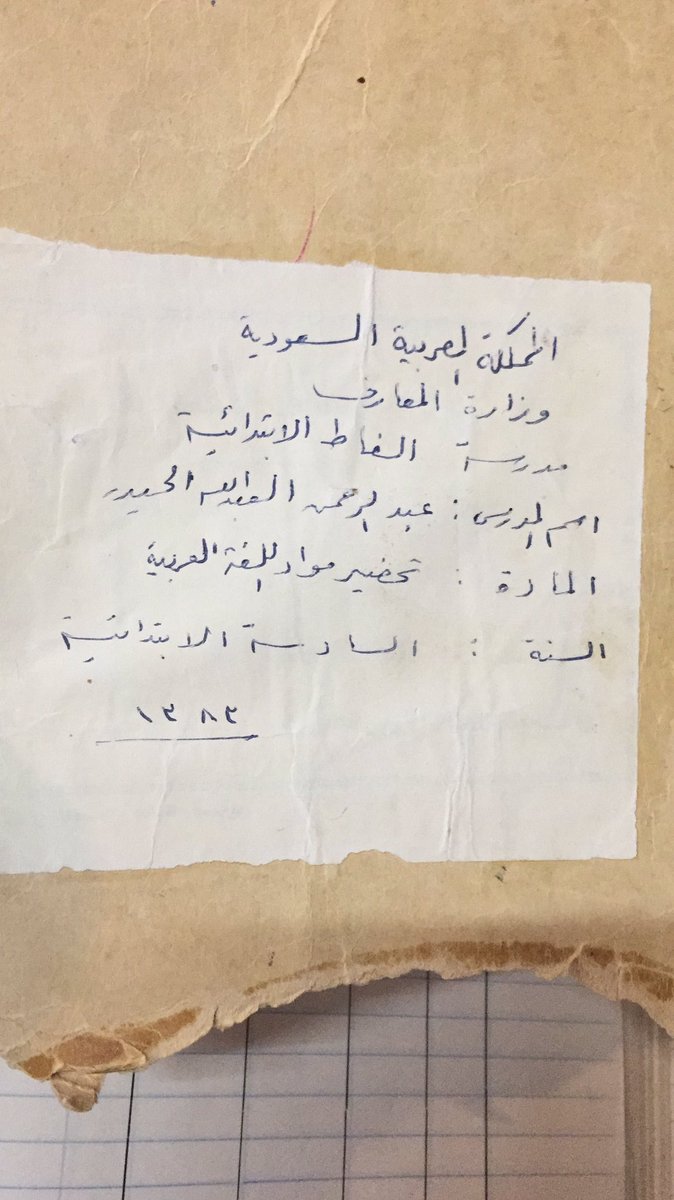 المملكة العربية السعودية
وزارة المعارف
مدرسة الغاط الابتدائية
اسم المدرس : عبد الرحمن العبدالله الحيدر
المادة : تحضير مواد اللغة العربية
السنة : السادسة الابتدائية
١٣٨٣